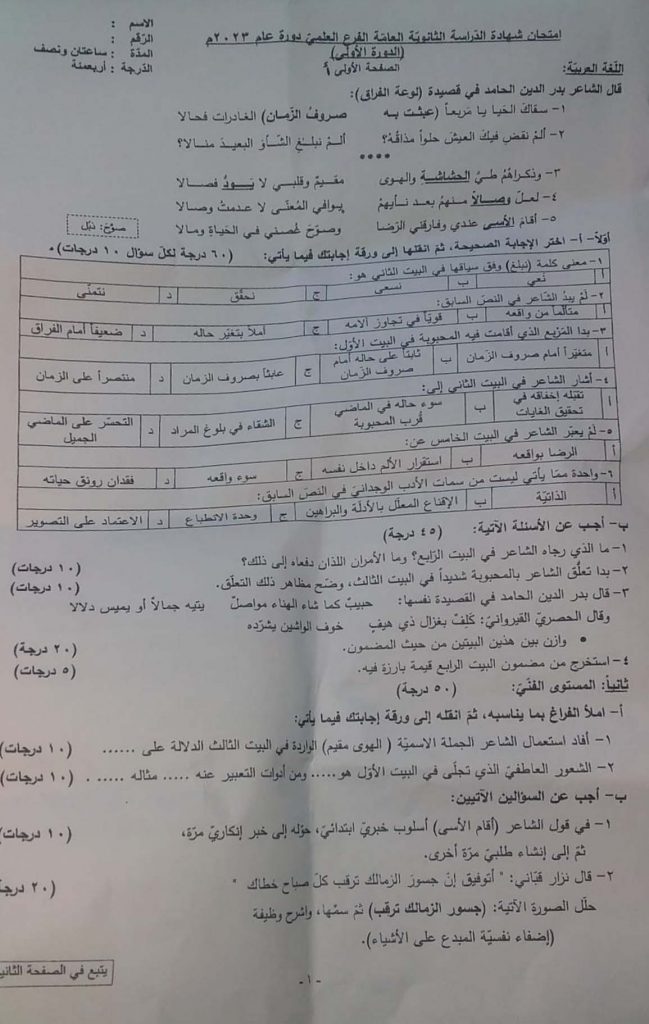 امتحان شهادة الدّراسة الثانويّة العامّة الفرع العلميّ دورة عام ٢٠٢٣م
(الدورة الأولى)
الاسم :
الرّقم :
المدّة : ساعتان ونصف
الدّرجة : أربعمئة
اللّغة العربيّة:
الصفحة الأولى
قال الشاعر بدر الدين الحامد في قصيدة (لوعة الفراق):
١- سقاكَ الحَيا يا مَربعاً (عبثت بـه صروفُ الزّمان) الغادرات فحالا
٢- ألمْ نقضِ فيكَ العيشَ حلواً مذاقُهُ؟ ألـمْ نبلـغِ الشّـأوَ البعيـدَ منـالا؟
****
٣- وذكراهُمُ طيُّ الحشاشةِ والهوى مقيمٌ وقلبي لا يَـودُّ فصالا
٤- لعـلَّ وصـالاً منهـمُ بعد نـأيهـمْ يـوافي المُعنّـى لا عدمـتُ وصـالا
٥- أقامَ الأسى عندي وفارقني الرّضا وصوّحَ غُصني في الحَياةِ ومـالا
صوّحَ: ذبُل
أوّلاً- أ- اختر الإجابة الصحيحة، ثمّ انقلها إلى ورقة إجابتك فيما يأتي: (٦٠ درجة لكلّ سؤال ١٠ درجات)٠
١- معنى كلمة (نبلغ) وفق سياقها في البيت الثاني هو:
أ نَعي ب نسعى ج نحقّق د نتمنّى
٢- لمْ يبدُ الشّاعر في النصّ السابق:
أ متألماً من واقعه ب قويّاً في تجاوز آلامه ج آملاً بتغيّر حاله د ضعيفاً أمام الفراق
٣- بدا المَرْبع الذي أقامت فيه المحبوبة في البيت الأوّل:
أ متغيّراً أمام صروف الزّمان ب ثابتاً على حاله أمام صروف الزّمان ج عابثاً بصروف الزمان د منتصراً على الزمان
٤- أشار الشاعر في البيت الثاني إلى:
أ تقبّله إخفاقه في تحقيق الغايات ب سوء حاله في الماضي قُرب المحبوبة ج الشقاء في بلوغ المراد د التحسّر على الماضي الجميل
٥- لمْ يعبّر الشاعر في البيت الخامس عن:
أ الرضا بواقعه ب استقرار الألم داخل نفسه ج سوء واقعه د فقدان رونق حياته
٦- واحدة ممّا يأتي ليست من سمات الأدب الوجدانيّ في النصّ السابق:
أ الذاتيّة ب الإقناع المعلّل بالأدلّة والبراهين ج وحدة الانطباع د الاعتماد على التصوير
ب- أجب عن الأسئلة الآتية: (٤٥ درجة)
١- ما الذي رجاه الشاعر في البيت الرّابع؟ وما الأمران اللذان دفعاه إلى ذلك؟ (١٠ درجات)
٢- بدا تعلّق الشاعر بالمحبوبة شديداً في البيت الثالث، وضّح مظاهر ذلك التعلّق. (١٠ درجات)
٣- قال بدر الدين الحامد في القصيدة نفسها: حبيبٌ كما شاء الهناء مواصلٌ يتيه جمالاً أو يميس دلالا
وقال الحصريّ القيروانيّ: كَلِفٌ بغزال ذي هيفٍ خوف الواشين يشرّده
• وازن بين هذين البيتين من حيث المضمون. (٢٠ درجة)
٤- استخرج من مضمون البيت الرابع قيمة بارزة فيه. (٥ درجات)
ثانياً: المستوى الفنّيّ: (٥٠ درجة)
أ- املأ الفراغ بما يناسبه، ثمّ انقله إلى ورقة إجابتك فيما يأتي:
١- أفاد استعمال الشاعر الجملة الاسميّة ( الهوى مقيم) الواردة في البيت الثالث الدلالة على ...... (١٠ درجات)
٢- الشعور العاطفيّ الذي تجلّى في البيت الأوّل هو..... ومن أدوات التعبير عنه ..... مثاله ..... . (١٠ درجات)
ب- أجب عن السؤالين الآتيين:
١- في قول الشاعر (أقام الأسى) أسلوب خبريّ ابتدائيّ، حوّله إلى خبر إنكاريّ مرّة، (١٠ درجات)
ثمّ إلى إنشاء طلبيّ مرّة أخرى.
٢- قال نزار قبّاني: " أتوفيق إنّ جسورَ الزمالك ترقب كلّ صباح خطاك " (٢٠ درجة)
حلّل الصورة الآتية: (جسور الزمالك ترقب) ثمّ سمّها، واشرح وظيفة
(إضفاء نفسيّة المبدع على الأشياء).
يتبع في الصفحة الثاني
- ١ -